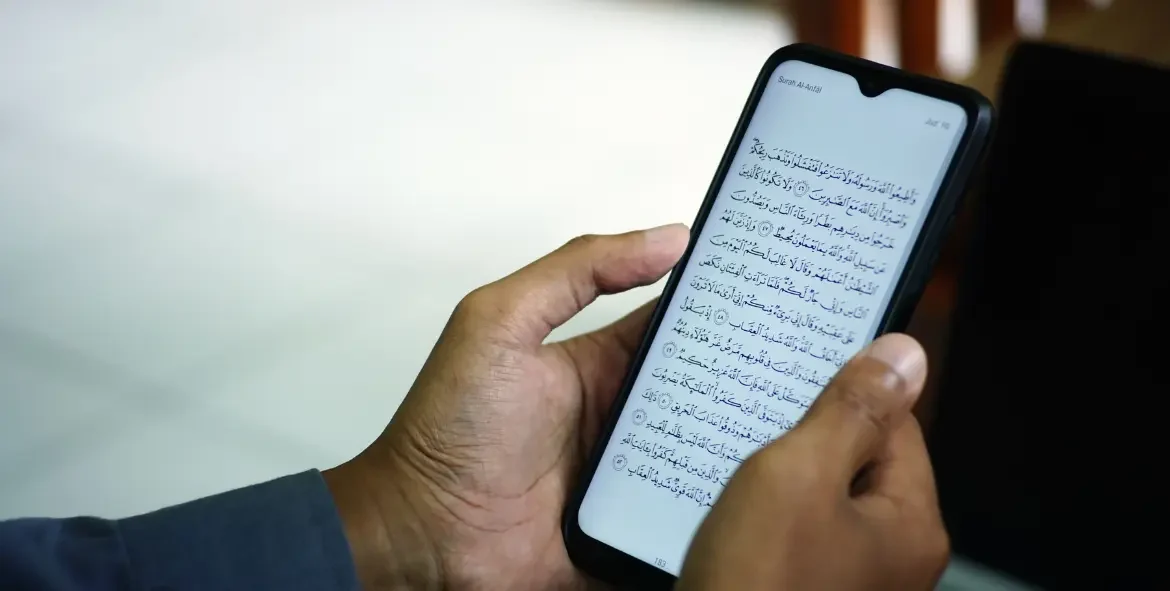 Surah Al-Anfāl
Juz' 10
وَأَطِيعُوا۟ ٱللَّهَ وَرَسُولَهُۥ وَلَا تَنَٰزَعُوا۟ فَتَفْشَلُوا۟ وَتَذْهَبَ رِيحُكُمْ ۖ
وَٱصْبِرُوٓا۟ ۚ إِنَّ ٱللَّهَ مَعَ ٱلصَّٰبِرِينَ ٤٦ وَلَا تَكُونُوا۟ كَٱلَّذِينَ
خَرَجُوا۟ مِن دِيَٰرِهِم بَطَرًا وَرِئَآءَ ٱلنَّاسِ وَيَصُدُّونَ
عَن سَبِيلِ ٱللَّهِ ۚ وَٱللَّهُ بِمَا يَعْمَلُونَ مُحِيطٌ ٤٧ وَإِذْ زَيَّنَ لَهُمُ
ٱلشَّيْطَٰنُ أَعْمَٰلَهُمْ وَقَالَ لَا غَالِبَ لَكُمُ ٱلْيَوْمَ مِنَ
ٱلنَّاسِ وَإِنِّى جَارٌ لَّكُمْ ۖ فَلَمَّا تَرَآءَتِ ٱلْفِئَتَانِ نَكَصَ
عَلَىٰ عَقِبَيْهِ وَقَالَ إِنِّى بَرِىٓءٌ مِّنكُمْ إِنِّىٓ أَرَىٰ مَا لَا تَرَوْنَ
أَخَافُ ٱللَّهَ ۚ وَٱللَّهُ شَدِيدُ ٱلْعِقَابِ ٤٨ إِذْ يَقُولُ
وَٱلَّذِينَ فِى قُلُوبِهِم مَّرَضٌ غَرَّ هَٰٓؤُلَآءِ دِينُهُمْ
عَلَى ٱللَّهِ فَإِنَّ ٱللَّهَ عَزِيزٌ حَكِيمٌ ٤٩
إِذْ يَتَوَفَّى ٱلَّذِينَ كَفَرُوا۟ ٱلْمَلَٰٓئِكَةُ يَضْرِبُونَ
وَذُوقُوا۟ عَذَابَ ٱلْحَرِيقِ ٥٠ ذَٰلِكَ
وَأَنَّ ٱللَّهَ لَيْسَ بِظَلَّٰمٍ لِّلْعَبِيدِ ٥١
وَٱلَّذِينَ مِن قَبْلِهِمْ ۚ كَفَرُوا۟ بِـَٔايَٰتِ ٱللَّهِ
إِنَّ ٱللَّهَ قَوِىٌّ شَدِيدُ ٱلْعِقَابِ ٥٢
183